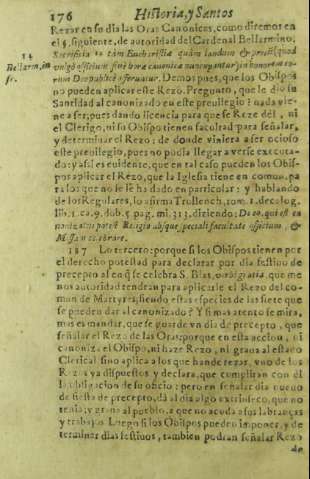 176 Historia, y Santos
Rezar en su dia las Oras Canonicas, como diremos en
el §. siguiente, de autoridad del Cardenal Bellarmino.
14
Bellarm. in
Sacrificia tã tàm Eucharistiæ quàm laudum & precũ (quod
vulgò officium sive horæ canonicæ nuncupantur) in honorem eorum
Deo publicè offeruntur. Demos pues, que los Obispos
no pueden aplicar este Rezo. Pregunto, que le dio su
Santidad al canonizado en este previlegio? nada viene
a ser, pues dando licencia para que se Reze dèl, ni
el Clerigo, ni su Obispo tienen facultad para señalar,
y determinar el Rezo; de donde viniera a ser ocioso
este previlegio, pues no podia llegar a verse executado:
y assi es evidente, que en tal caso pueden los Obispos
aplicar el Rezo, que la Iglesia tiene en comun, para
los que no se le ha dado en particular: y hablando
de los Regulares, lo afirma Trullench, tom. 1. decalog.
lib. 1. ca. 9. dub. 5. pag. mi. 313. diziendo: De eo, qui est canonizatus
potest Religio absque speciali facultate officium, &
Missam celebrare.
187 Lo tercero: porque si los Obispos tienen por
el derecho potestad para declarar por dia festivo de
precepto al en q̃ se celebra S. Blas, verbi gratia, que menos
autoridad tendran para aplicarle el Rezo del comun
de Martyres, siendo estas especies de las siete que
se pueden dar al canonizado? Y si mas atento se mira,
mas es mandar, que se guarde vn dia de precepto, que
señalar el Rezo de las Oras: porque en esta accion, ni
canoniza el Obispo, ni haze Rezo, ni grava al estado
Clerical sino aplica a los que han de rezar, vno de los
Rezos ya dispuestos y declara, que cumpliran con èl
la obligacion de su oficio: pero en señalar dia nuevo
de fiesta de precepto, dà al dia algo extrinseco, que no
tenia; y grava al pueblo, a que no acuda a sus labranças
y trabajo. Luego si los Obispos pueden imponer, y determinar
dias festivos, tambien podran señalar Rezo
de